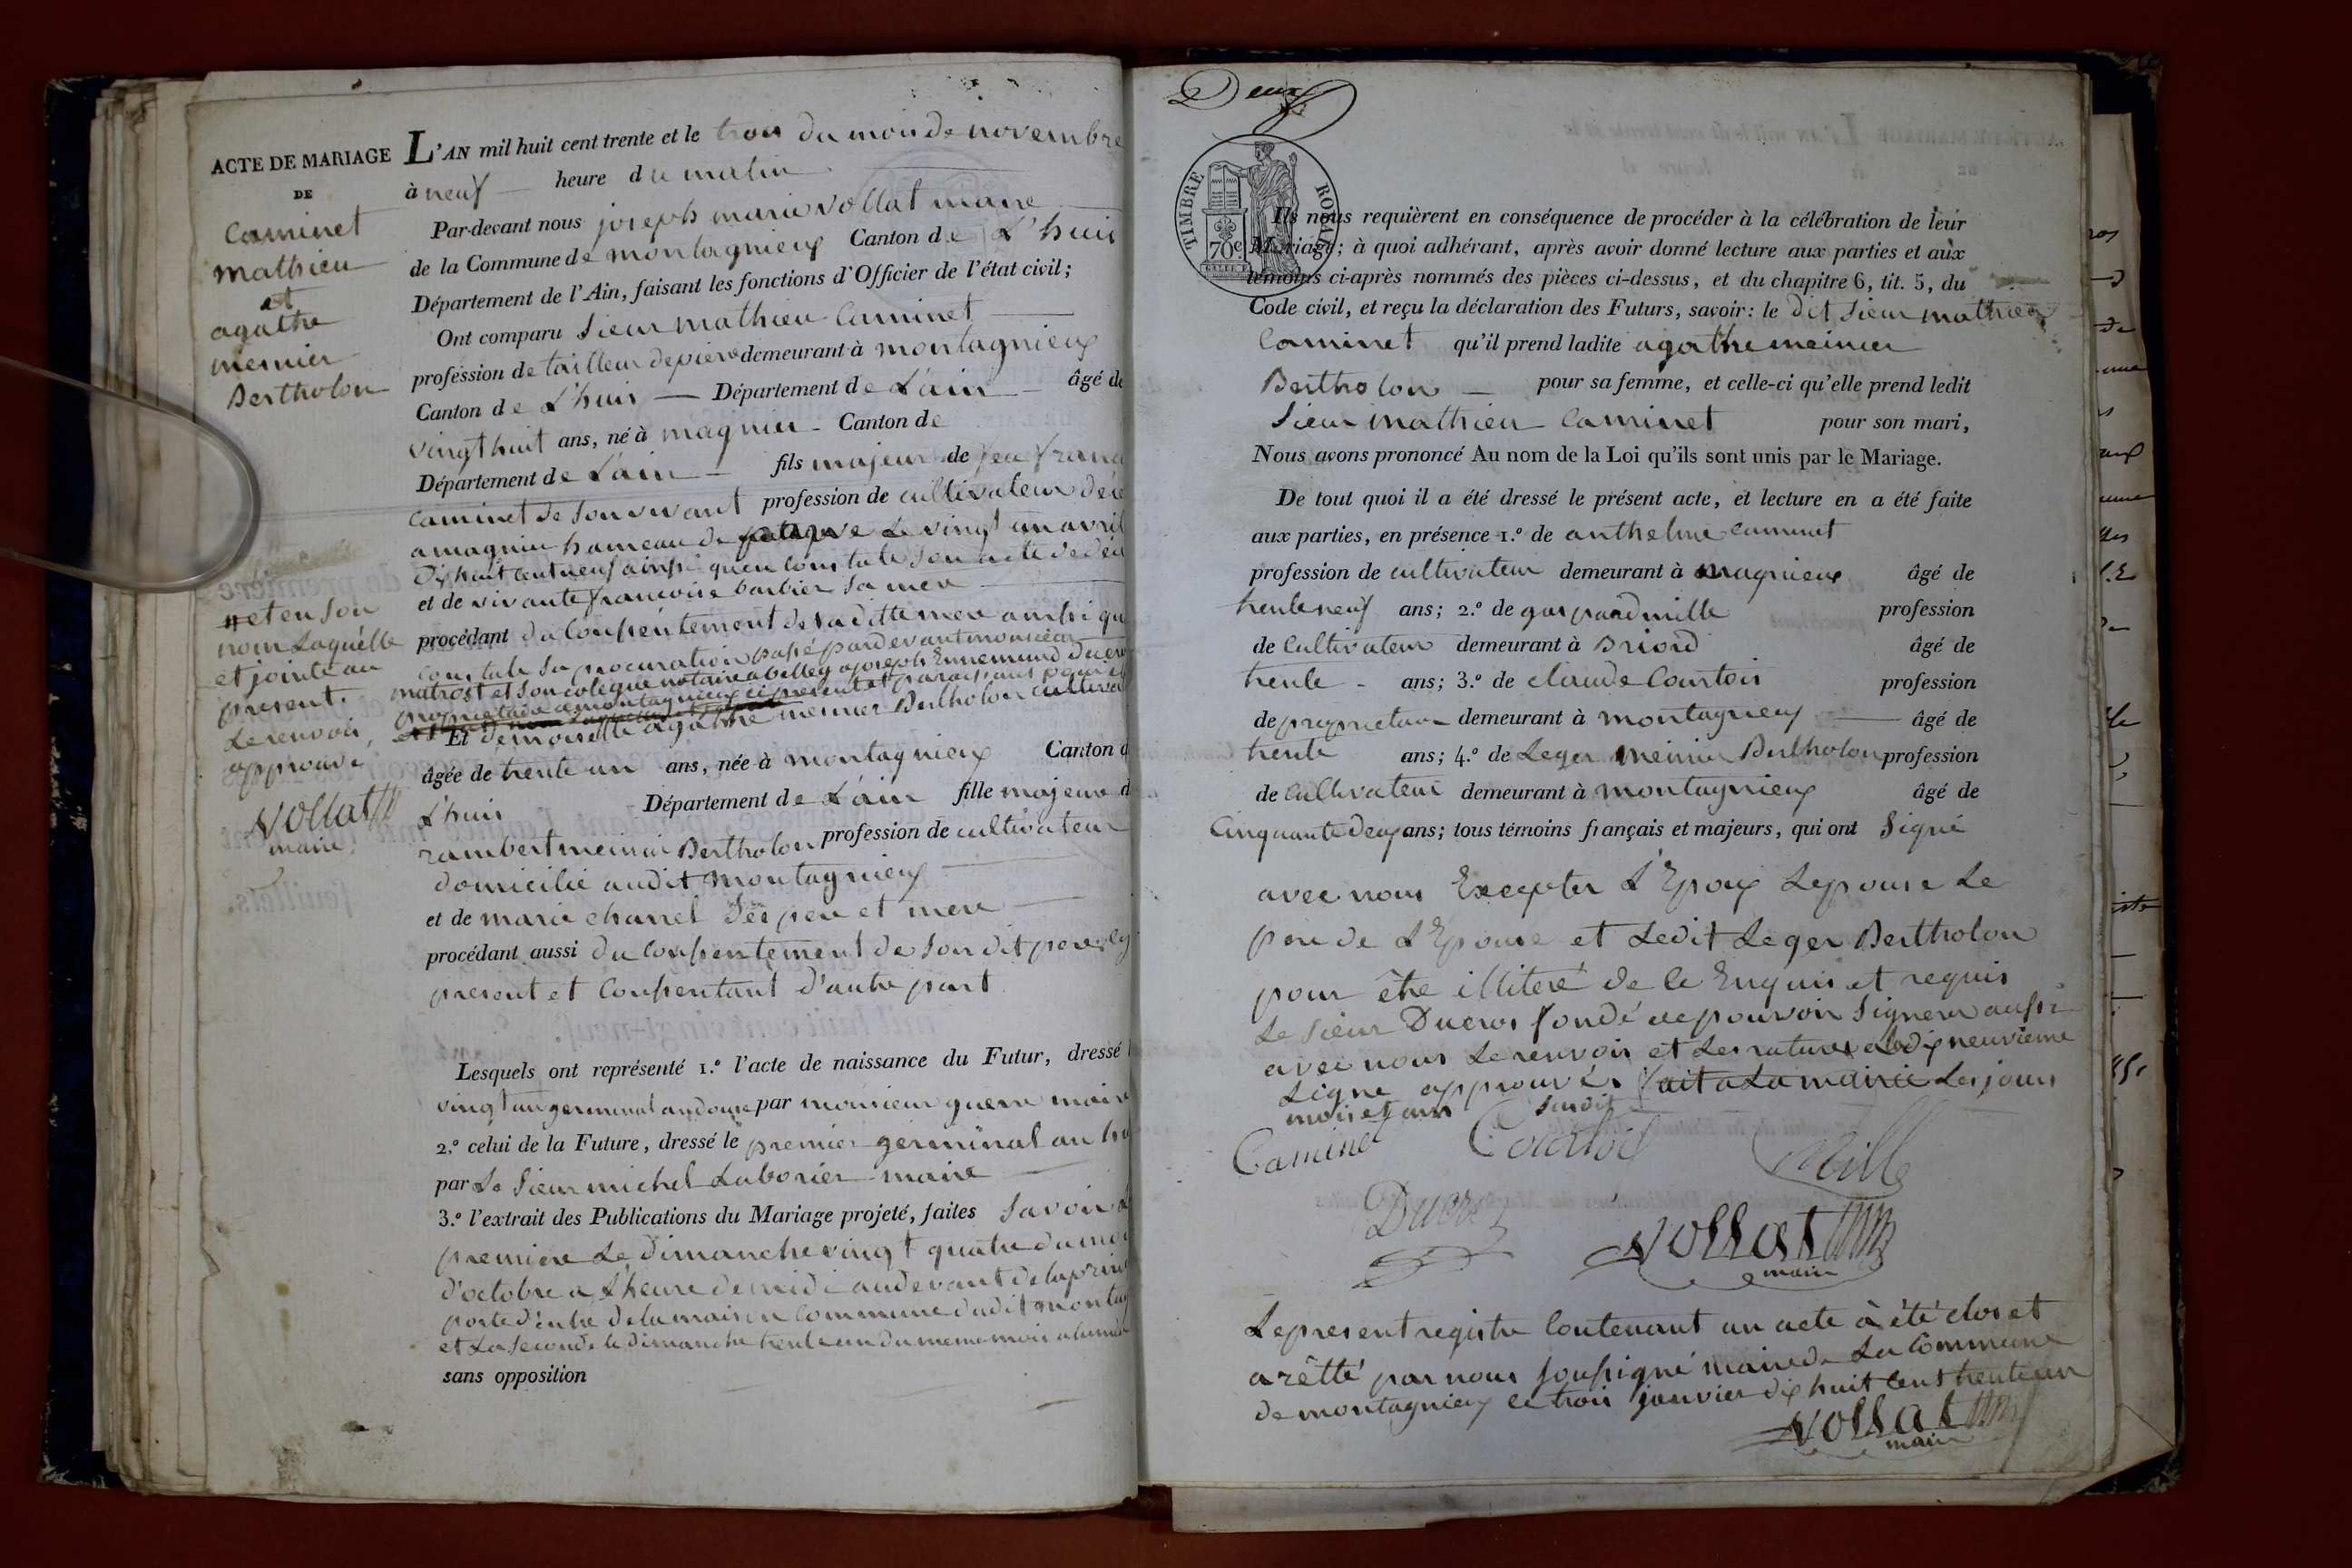 ACTE DE MARIAGE
DE
Caminet
mathieu
et
agathe
meinier
Bertholon
# et en son
nom Laquelle
et jointe au
present.
Le renvoi
approuvé
Vollat
maire
L'AN mil huit cent trente et le trois du mois de novembre
à neuf heure du matin
Par-devant nous joseph marie vollat maire
de la Commune de montagnieux Canton de L'huis
Département de l'Ain, faisant les fonctions d'Officier de l'état civil;
Ont comparu Sieur mathieu Caminet
profession de tailleur de piere demeurant à montagnieux
Canton de L'huis Département de L'ain âgé de
vingt huit ans, né à magnieu Canton de
Département de L'ain fils majeur de feu
Caminet de Son vivant profession de cultivateur
a magnieu hameau de Le vingt un avril
dix huit cent neuf ainsi qu'en constate Son acte de
et de vivante francoise barbier Sa mere
procédant du Consentement de sa ditte mere ainsi que
Constate Sa procuration passé pardevant monsieur
et Son colegue notaire a belley a joseph Ennemond
proprietaire a montagnieux ci present et
Et demoiselle agathe meinier Bertholon
âgée de trente un ans, née à montagnieux Canton d
L'huis Département de L'ain fille majeure d
rambert meinier Bertholon profession de cultivateur
domicilié audit montagnieux
et de marie charrel Ses pere et mere
procédant aussi du Consentement de Son dit pere
present et Consentant d'autre part
Lesquels ont représenté 1.º l'acte de naissance du Futur, dressé
vingt un germinal an douze par monsieur guerre maire
2.º celui de la Future, dressé le premier germinal an
par Le Sieur michel Laborier maire
3.º l'extrait des Publications du Mariage projeté, faites Savoir
premiere Le dimanche vingt quatre du
d'octobre a L'heure de midi au devant de la
porte d'entré de la maison Commune dudit
et La Seconde le dimanche trente un du meme mois
sans opposition
Deux
TIMBRE ROYAL
70c
Ils nous requièrent en conséquence de procéder à la célébration de leur
Mariage; à quoi adhérant, après avoir donné lecture aux parties et aux
témoins ci-après nommés des pièces ci-dessus, et du chapitre 6, tit. 5, du
Code civil, et reçu la déclaration des Futurs, savoir: le dit Sieur mathieu
Caminet qu'il prend ladite agathe meinier
Bertholon pour sa femme, et celle-ci qu'elle prend ledit
Sieur mathieu Caminet pour son mari,
Nous avons prononcé Au nom de la Loi qu'ils sont unis par le Mariage.
De tout quoi il a été dressé le présent acte, et lecture en a été faite
aux parties, en présence 1.º de anthelme caminet
profession de cultivateur demeurant à magnieux âgé de
trente neuf ans; 2.º de gaspard mille profession
de Cultivateur demeurant à Briord âgé de
trente ans; 3.º de claude Courtois profession
de proprietaire demeurant à montagnieux âgé de
trente ans; 4.º de Leger meinier Bertholon profession
de Cultivateur demeurant à montagnieux âgé de
Cinquante deux ans; tous témoins français et majeurs, qui ont Signé
avec nous Excepter L'Epoux Lepouse Le
pere de L'Epouse et Ledit Leger Bertholon
pour être illiteré de ce Enquis et requis
Le Sieur Ducros fondé de pouvoir Signera aussi
avec nous Le renvois et Les ratures a La dix neuvieme
Ligne approuvés fait a La mairie Les jours
mois et an Susdit
Caminet Courtois Mille
Ducros Vollat
maire
Le present registre Contenant un acte à été clos et
arêtté par nous Soussigné maire de La Commune
de montagnieux ce trois janvier dix huit cent trente un
Vollat
maire